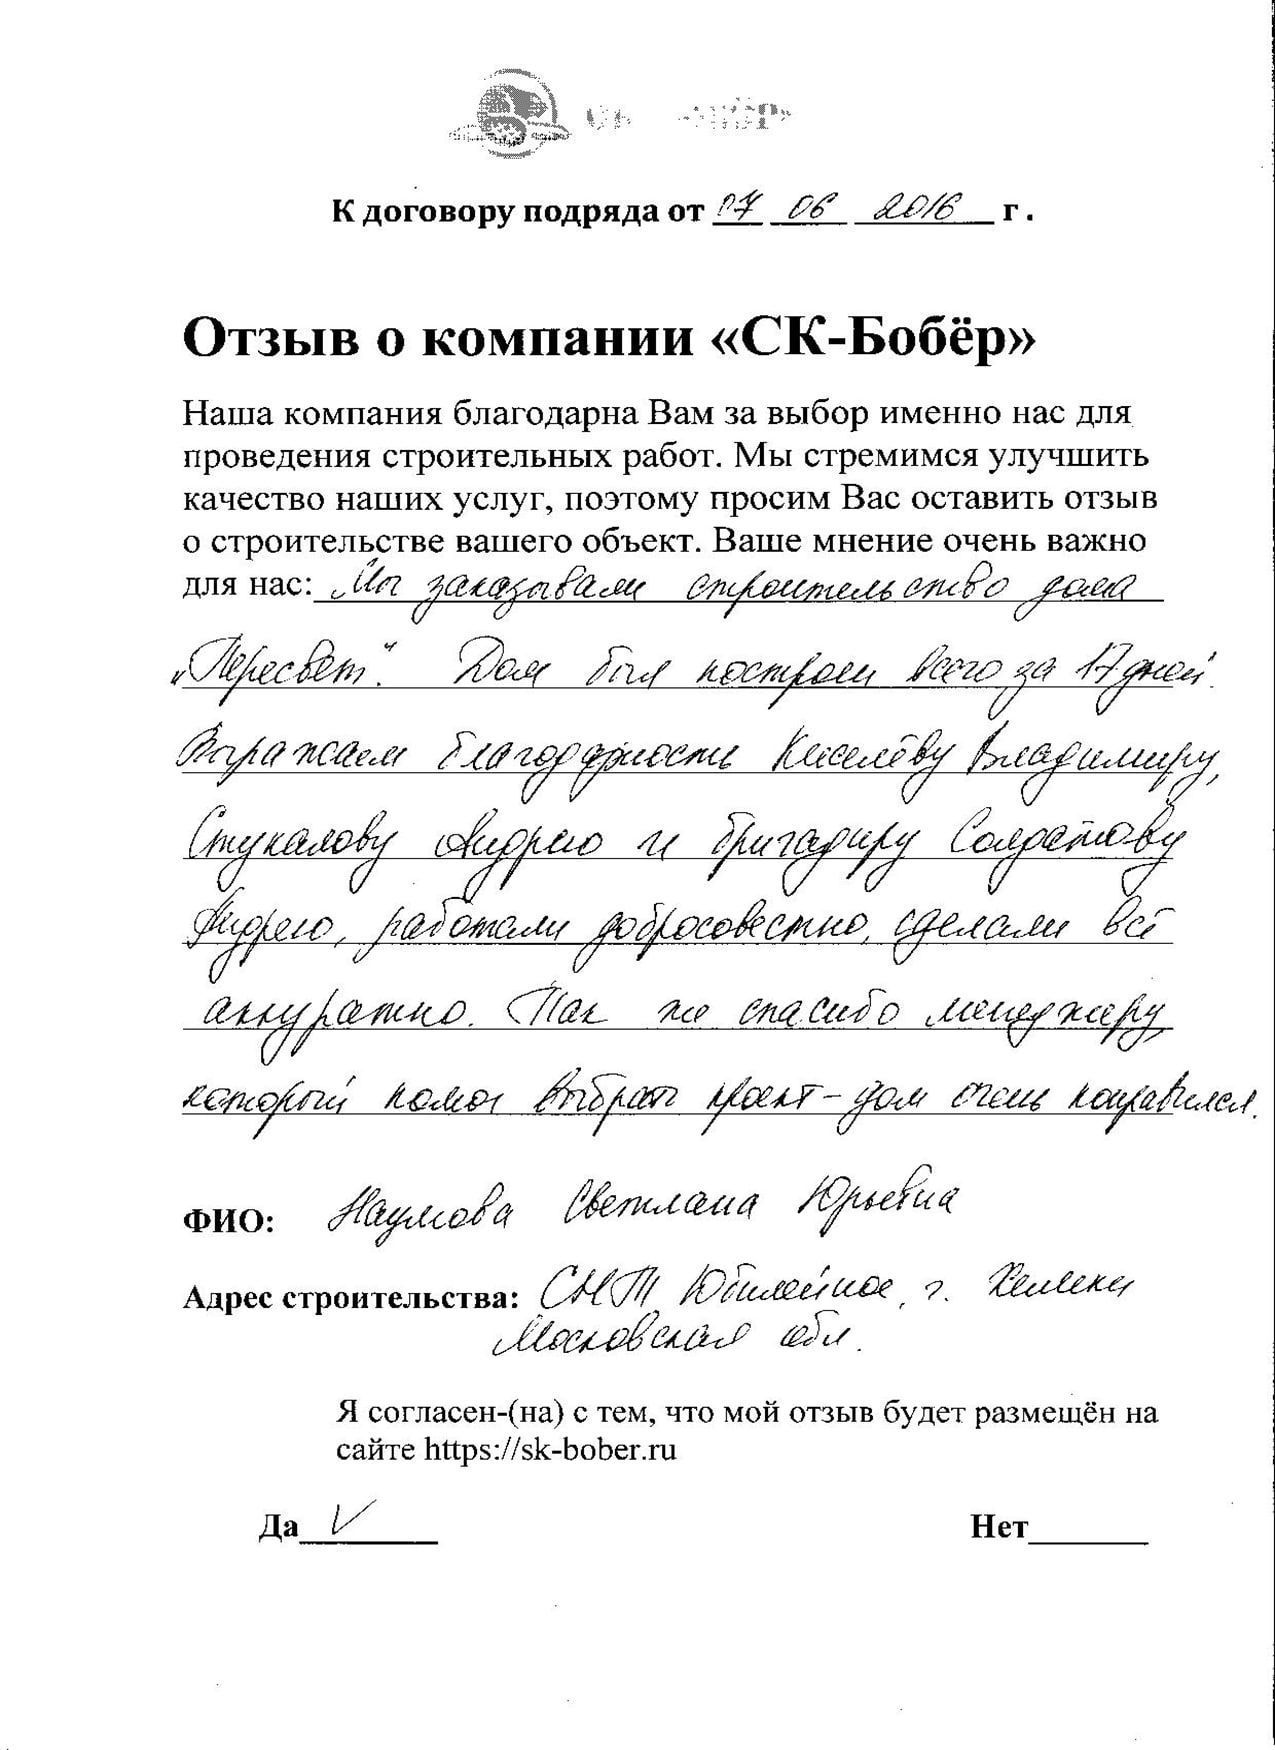 К договору подряда от 07 06 2016 г.
Отзыв о компании «СК-Бобёр»
Наша компания благодарна Вам за выбор именно нас для
проведения строительных работ. Мы стремимся улучшить
качество наших услуг, поэтому просим Вас оставить отзыв
о строительстве вашего объект. Ваше мнение очень важно
для нас: Мы заказывали строительство дома
„Пересвет". Дом был построен всего за 17 дней.
Выражаем благодарность Киселёву Владимиру,
Стукалову Андрею и бригадиру Солдатову
Андрею, работали добросовестно, сделали всё
аккуратно. Так же спасибо менеджеру,
который помог выбрать проект - дом очень понравился.
ФИО: Наумова Светлана Юрьевна
Адрес строительства: СНТ Юбилейное, г. Химки
Московская обл.
Я согласен-(на) с тем, что мой отзыв будет размещён на
сайте https://sk-bober.ru
Да V Нет